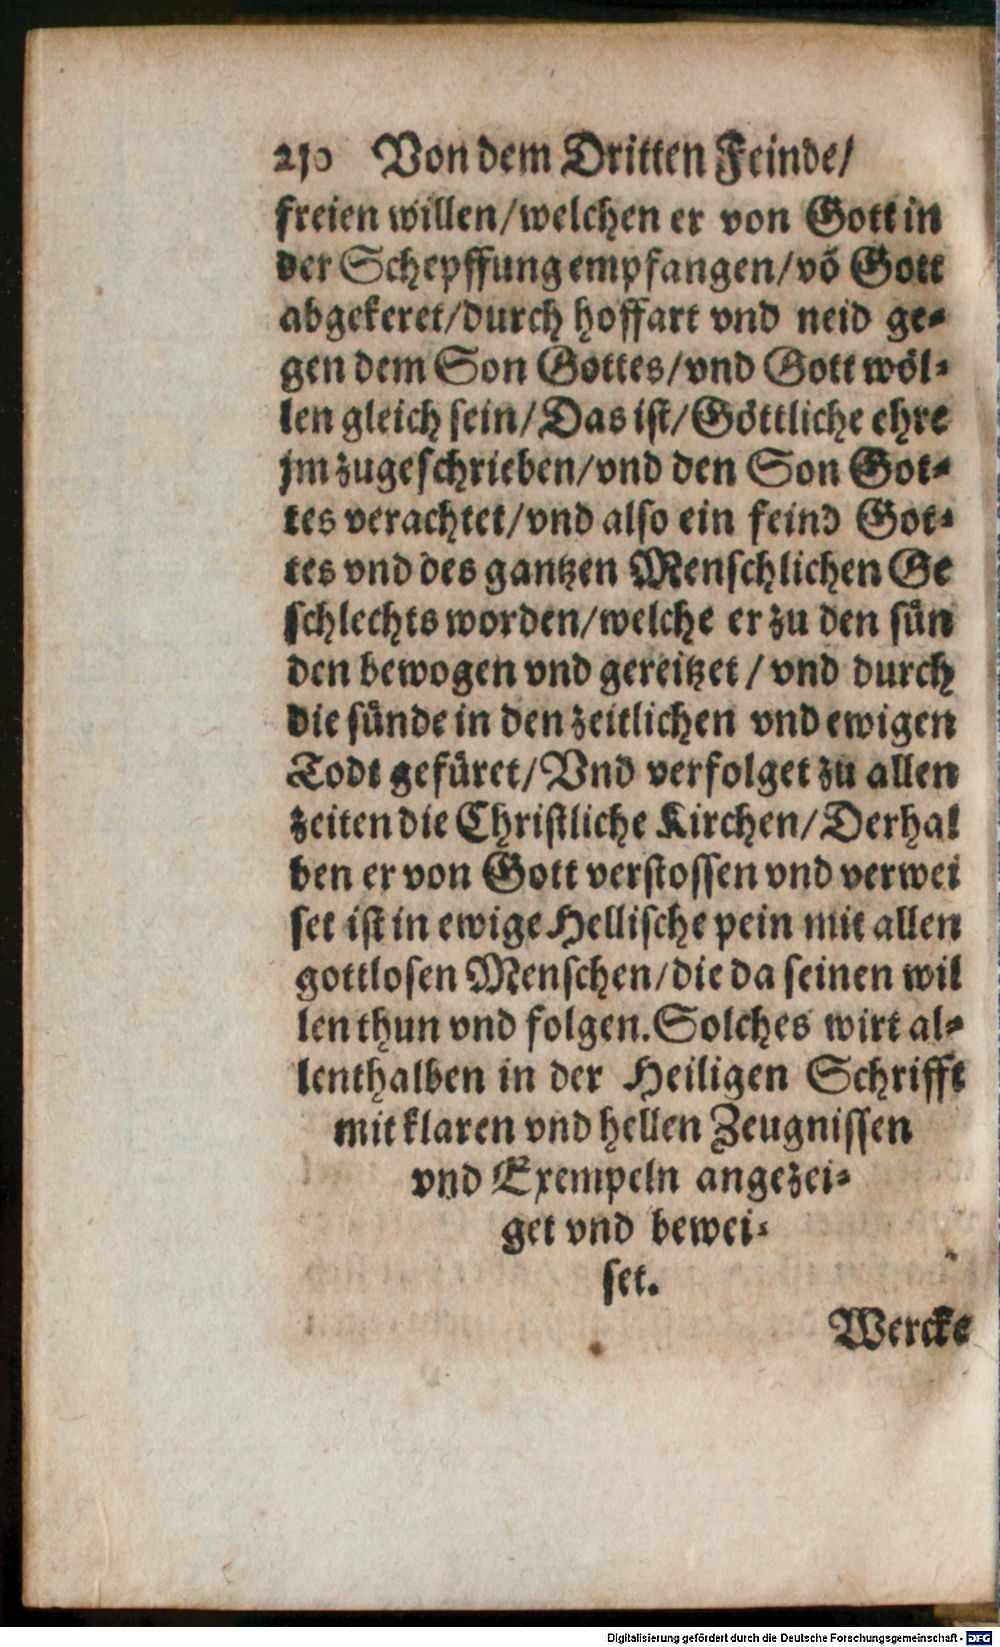 250 Von dem Dritten Feinde/
freien willen/welchen er von Gott in
der Schepffung empfangen/võ Gott
abgekeret/durch hoffart vnd neid ge-
gen dem Son Gottes/vnd Gott wöl-
len gleich sein/Das ist/Göttliche ehre
jm zugeschrieben/vnd den Son Got-
tes verachtet/vnd also ein feind Got-
tes vnd des gantzen Menschlichen Ge
schlechts worden/welche er zu den sün
den bewogen vnd gereitzet / vnd durch
die sünde in den zeitlichen vnd ewigen
Todt gefüret/Vnd verfolget zu allen
zeiten die Christliche Kirchen/Derhal
ben er von Gott verstossen vnd verwei
set ist in ewige Hellische pein mit allen
gottlosen Menschen/die da seinen wil
len thun vnd folgen. Solches wirt al-
lenthalben in der Heiligen Schrifft
mit klaren vnd hellen Zeugnissen
vnd Exempeln angezei-
get vnd bewei-
set.
Wercke
Digitalisierung gefördert durch die Deutsche Forschungsgemeinschaft - DFG